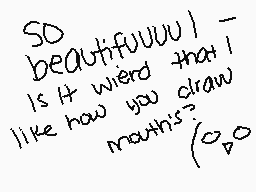 SO
beautifuuuul -
Is It wierd that I
like how you draw
mouths?